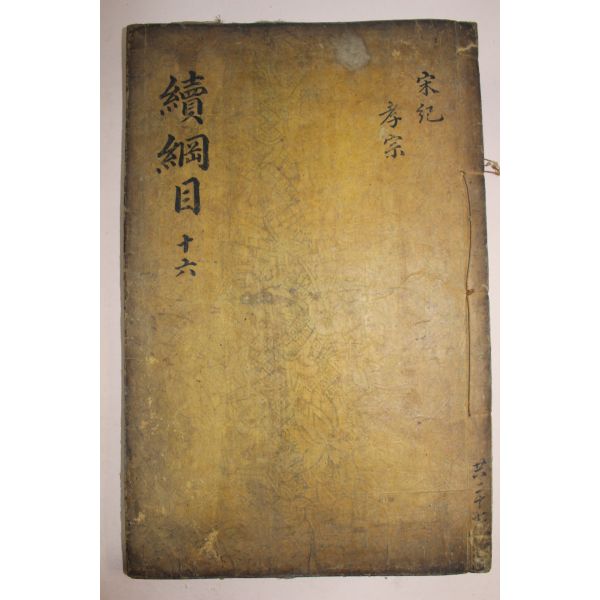 宋紀
孝宗
續綱目 十六
共二十七